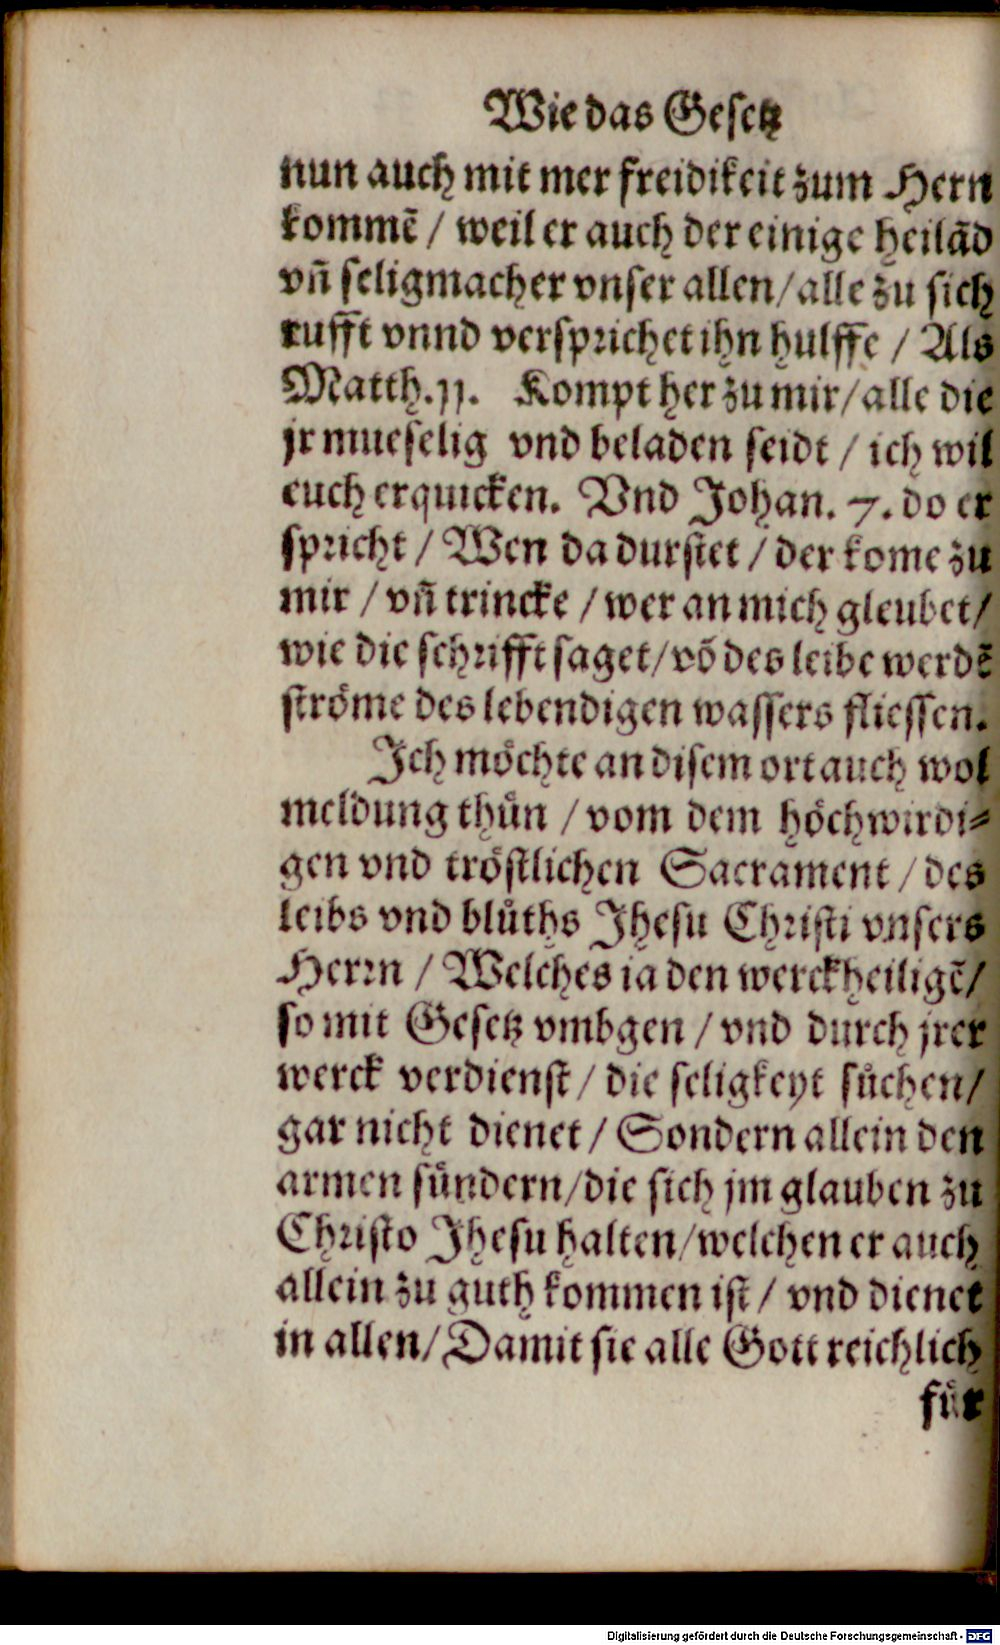 Wie das Gesetz
nun auch mit mer freidikeit zum Hern
kommẽ / weil er auch der einige heilãd
vñ seligmacher vnser allen / alle zu sich
rufft vnnd versprichet ihn hulffe / Als
Matth. 11. Kompt her zu mir / alle die
jr mueselig vnd beladen seidt / ich wil
euch erquicken. Vnd Johan. 7. do er
spricht / Wen da durstet / der kome zu
mir / vñ trincke / wer an mich gleubet /
wie die schrifft saget / võ des leibe werdẽ
ströme des lebendigen wassers fliessen.
Ich möchte an disem ort auch wol
meldung thůn / vom dem höchwirdi⸗
gen vnd tröstlichen Sacrament / des
leibs vnd blůths Jhesu Christi vnsers
Herrn / Welches ia den werckheiligẽ /
so mit Gesetz vmbgen / vnd durch jrer
werck verdienst / die seligkeyt sůchen /
gar nicht dienet / Sondern allein den
armen sůndern / die sich jm glauben zu
Christo Jhesu halten / welchen er auch
allein zu guth kommen ist / vnd dienet
in allen / Damit sie alle Gott reichlich
fůr
Digitalisierung gefördert durch die Deutsche Forschungsgemeinschaft - DFG